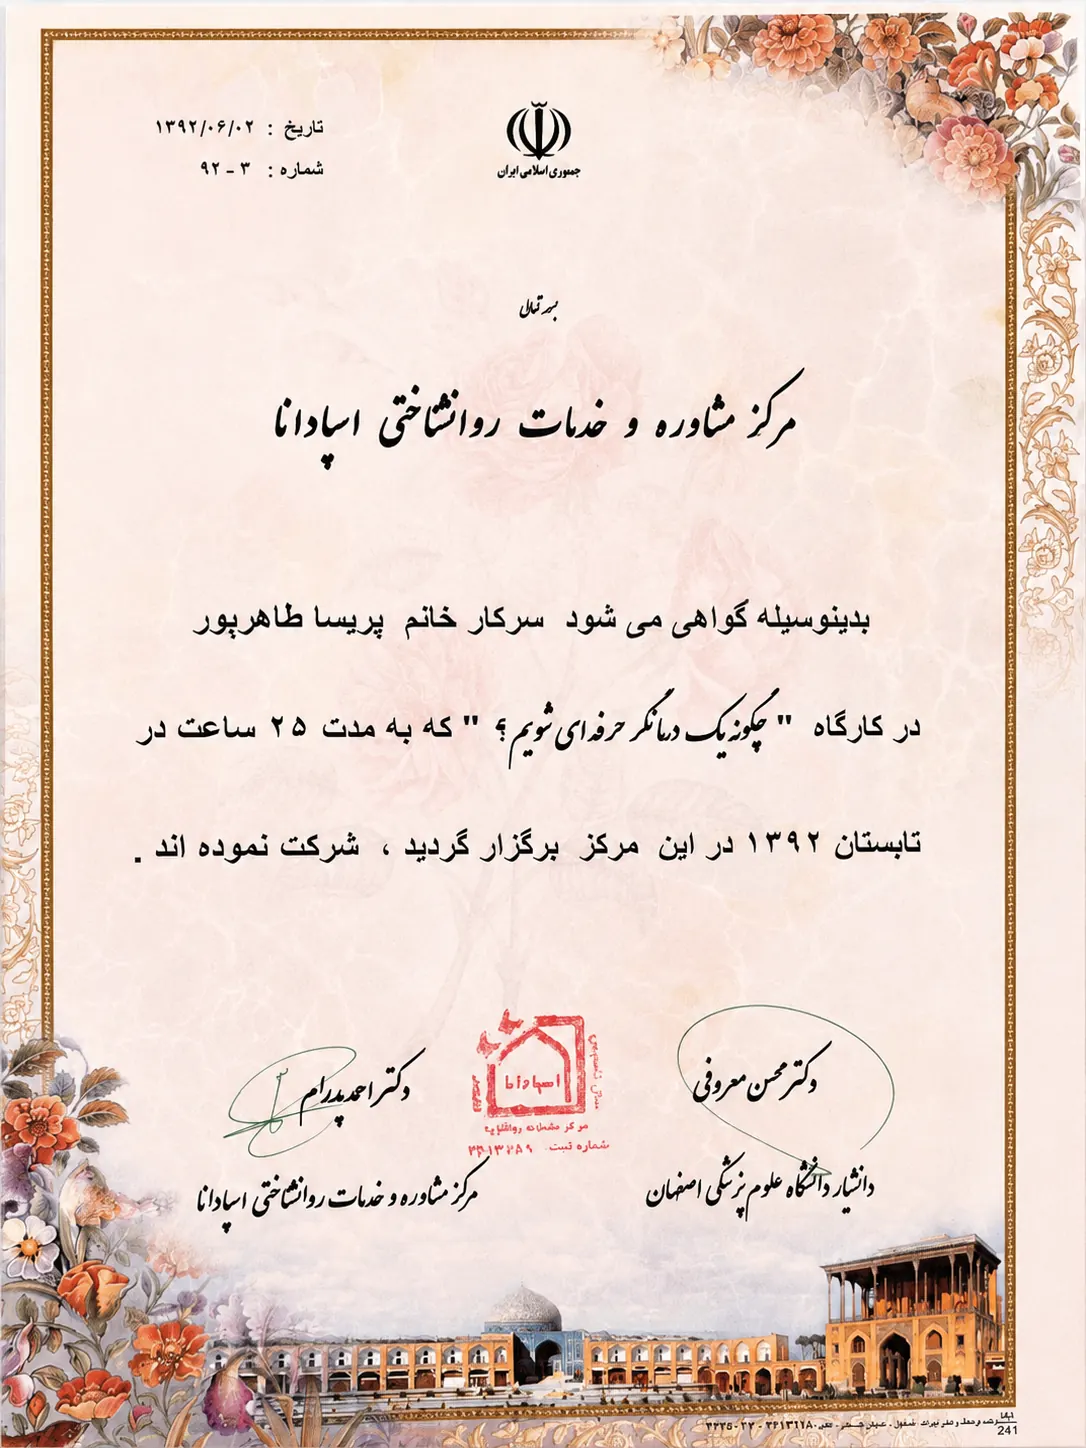 جمهوری اسلامی ایران
تاریخ : ۱۳۹۲/۰۶/۰۲
شماره : ۳ - ۹۲
بسمه تعالی
مرکز مشاوره و خدمات روانشناختی اسپادانا
بدینوسیله گواهی می شود سرکار خانم پریسا طاهرپور
در کارگاه " چگونه یک درمانگر حرفه ای شویم ؟ " که به مدت ۲۵ ساعت در
تابستان ۱۳۹۲ در این مرکز برگزار گردید ، شرکت نموده اند .
دکتر محسن معروفی
دانشیار دانشگاه علوم پزشکی اصفهان
دکتر احمد پدرام
مرکز مشاوره و خدمات روانشناختی اسپادانا
اسپادانا
شماره ثبت
241